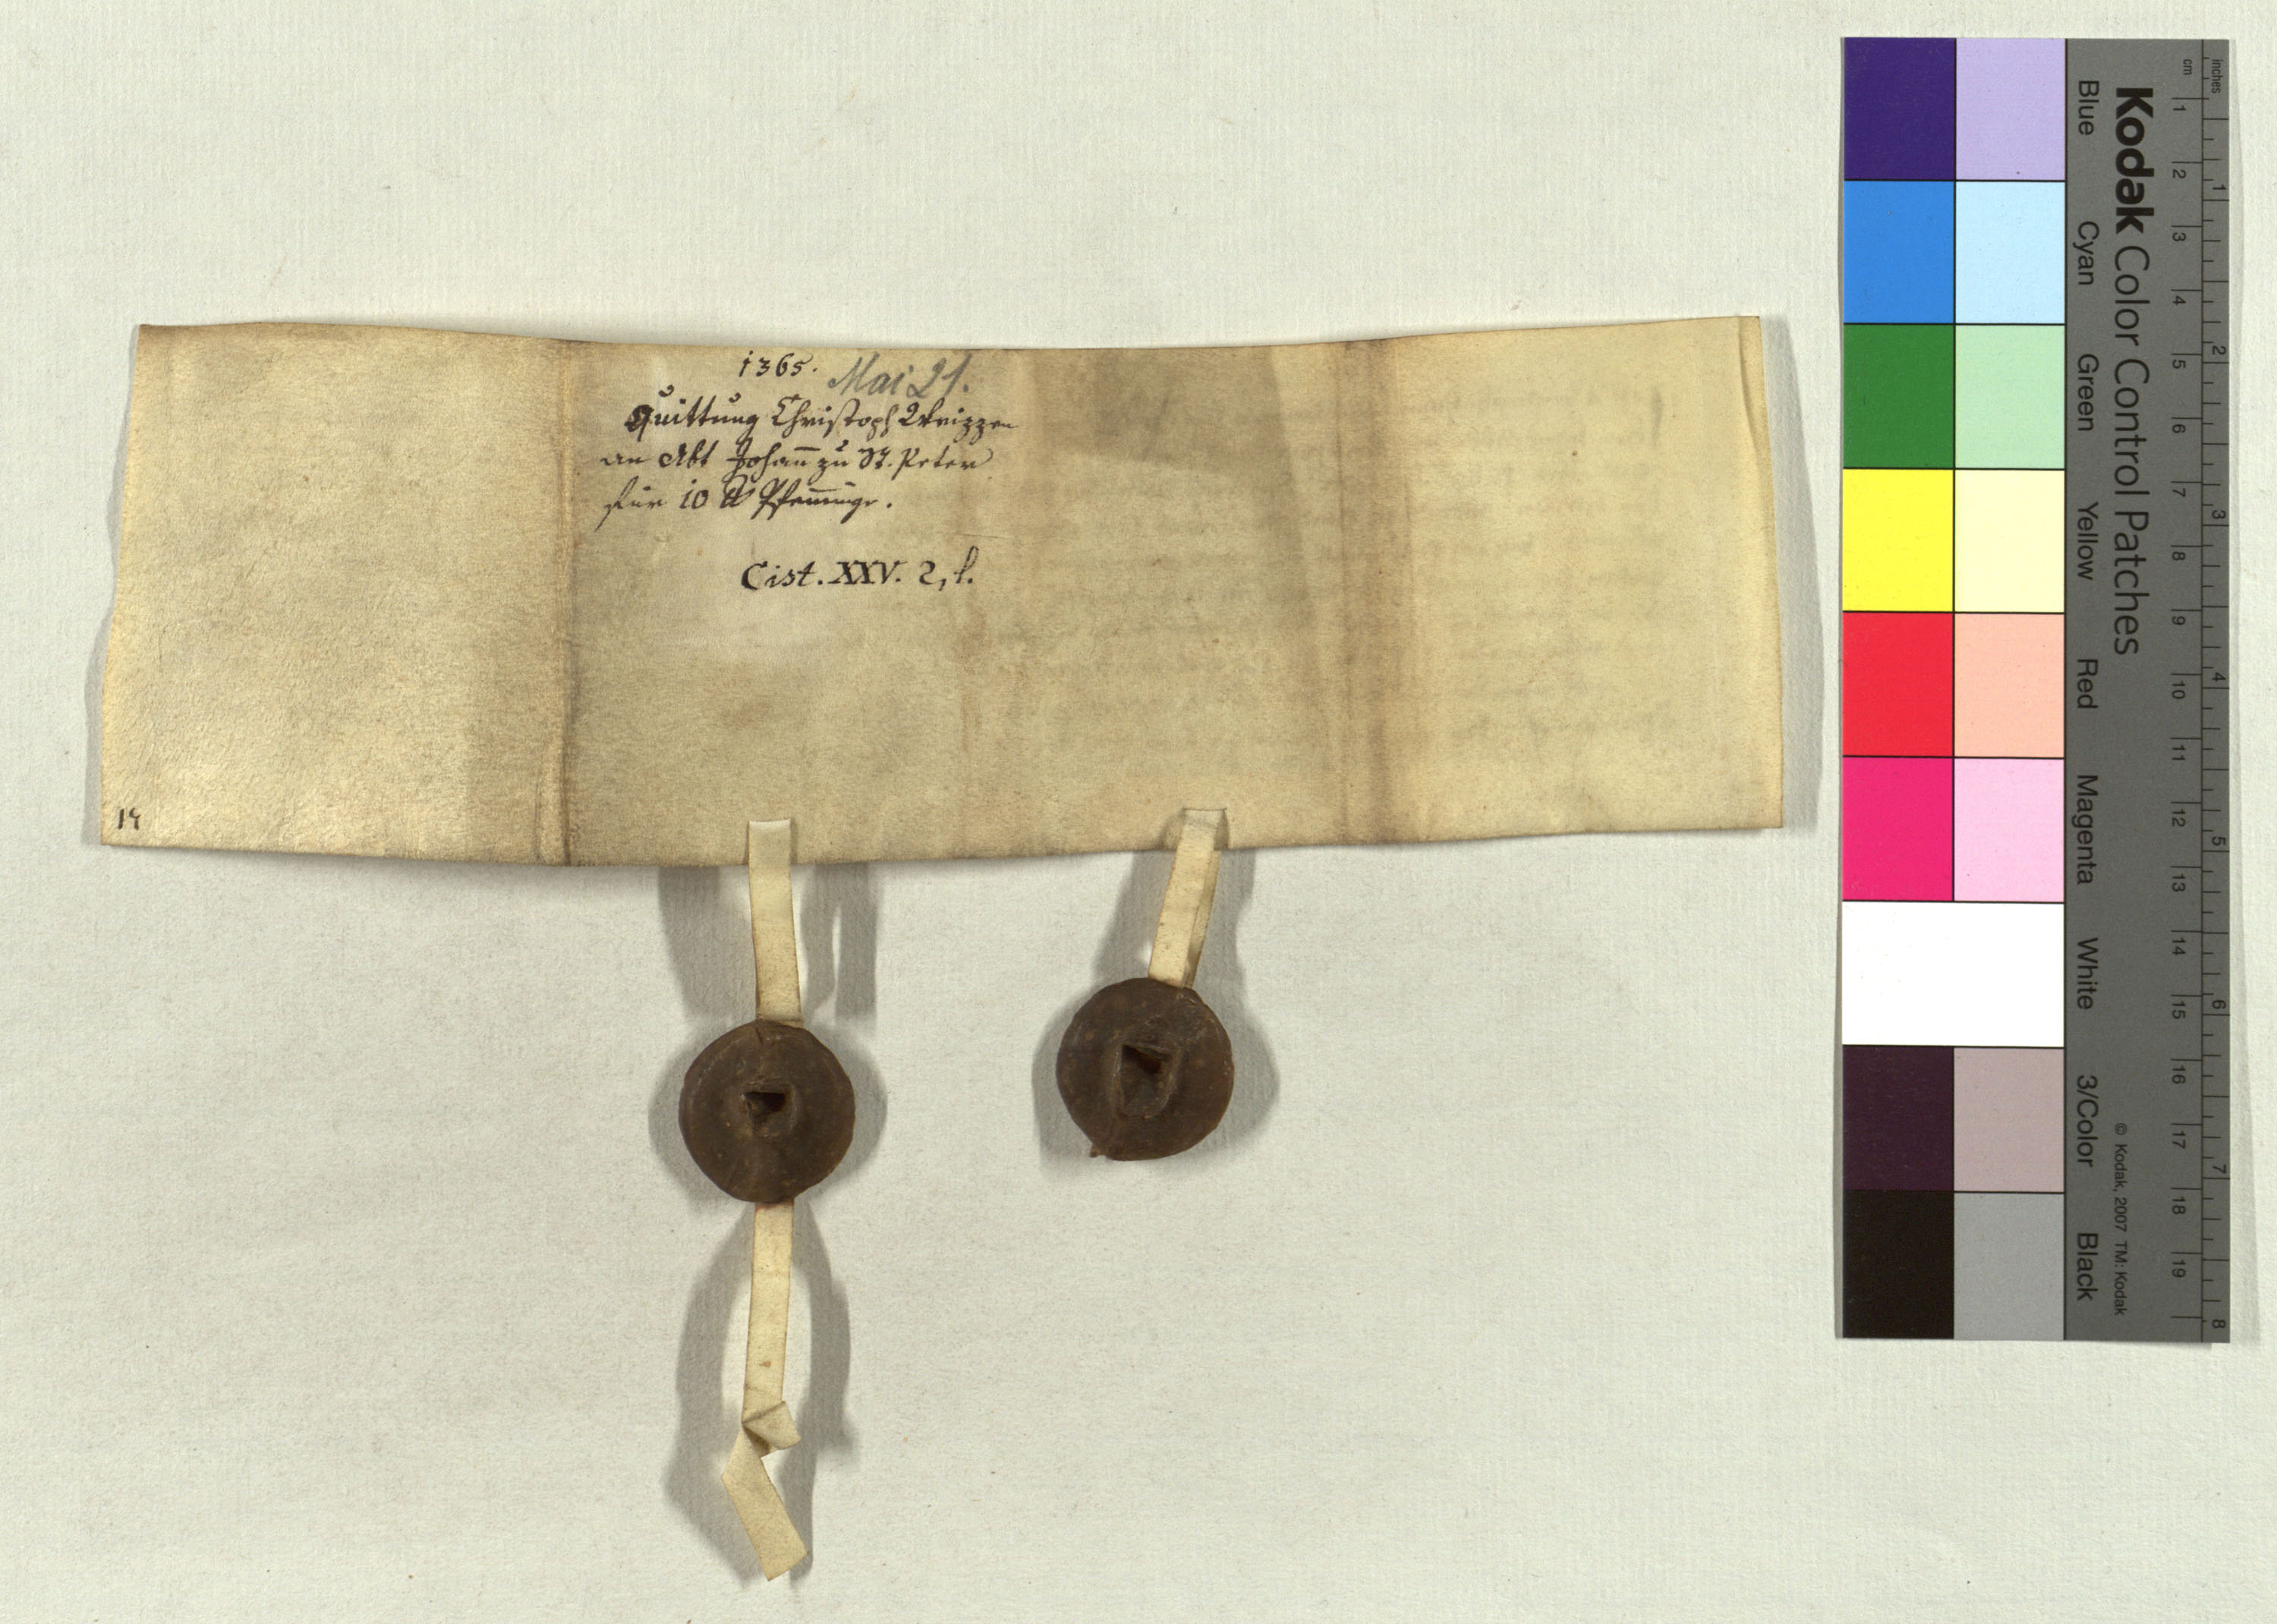 1365. Mai 21.
Quittung Christoph
an Abt Johan̄ zu St. Peter
für 10 ℔ Pfen̄inge.
Cist. XXV. 2, l.
14
Kodak Color Control Patches
Blue Cyan Green Yellow Red Magenta White 3/Color Black
© Kodak, 2007 TM: Kodak
cm 1 2 3 4 5 6 7 8 9 10 11 12 13 14 15 16 17 18 19
inches 1 2 3 4 5 6 7 8